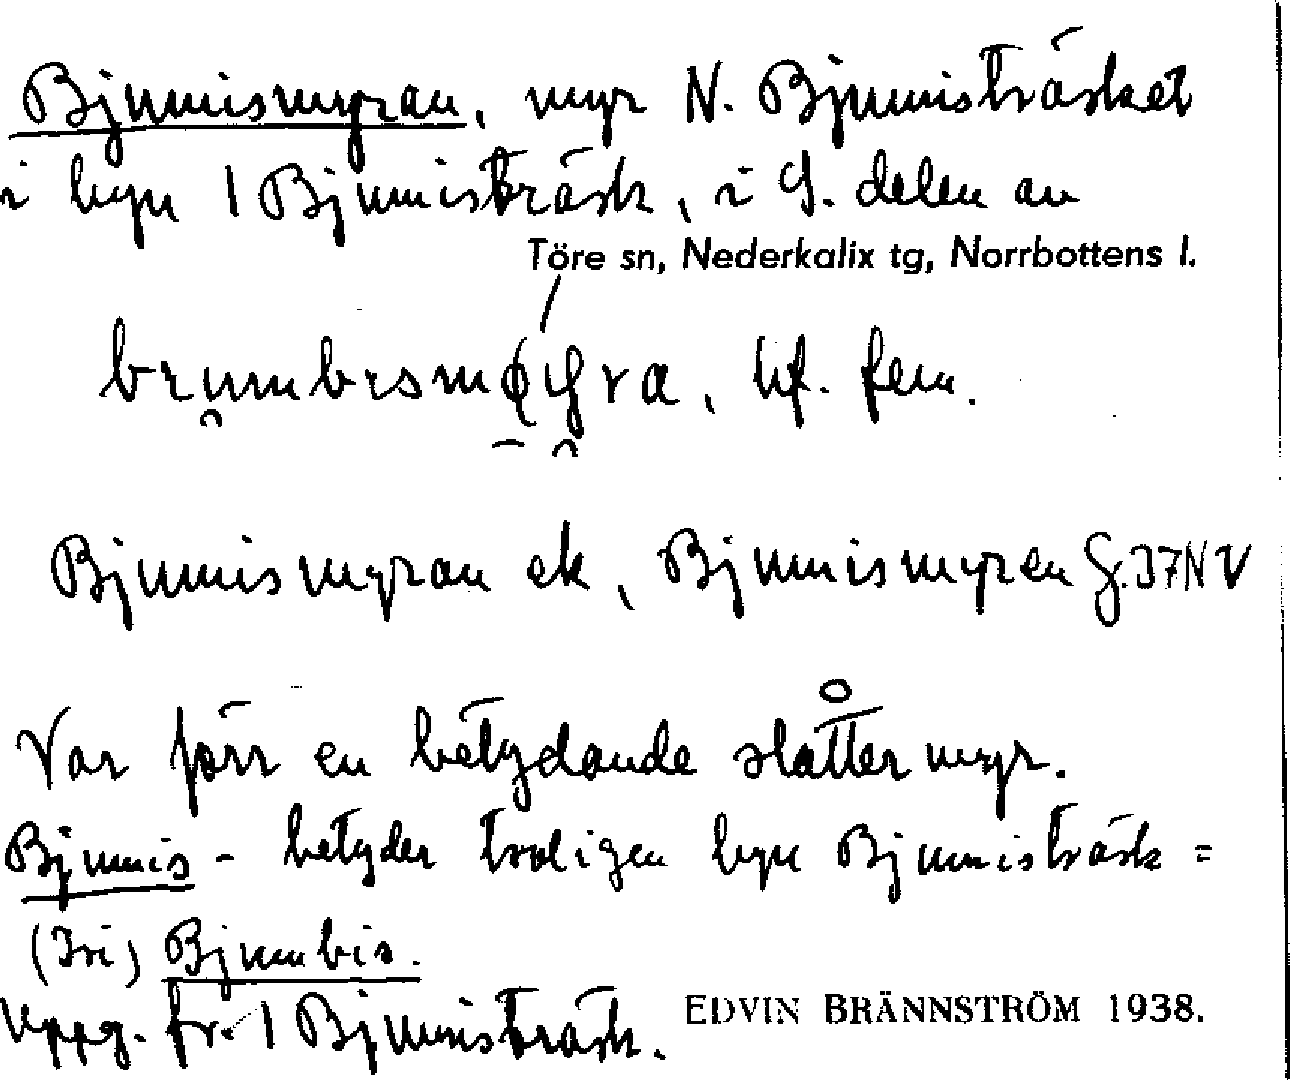 Bjumismyran, myr N. Bjumisträsket
i byn 1 Bjumisträsk, i S. delen av
Töre sn, Nederkalix tg, Norrbottens l.
bf. fem.
Bjumismyran ek, Bjumismyren G. 37NV
Var förr en betydande slåttermyr.
Bjumis - betyder troligen byn Bjumisträsk =
(Tri) Bjumbis.
Uppg. fr. 1 Bjumisträsk.
EDVIN BRÄNNSTRÖM 1938.